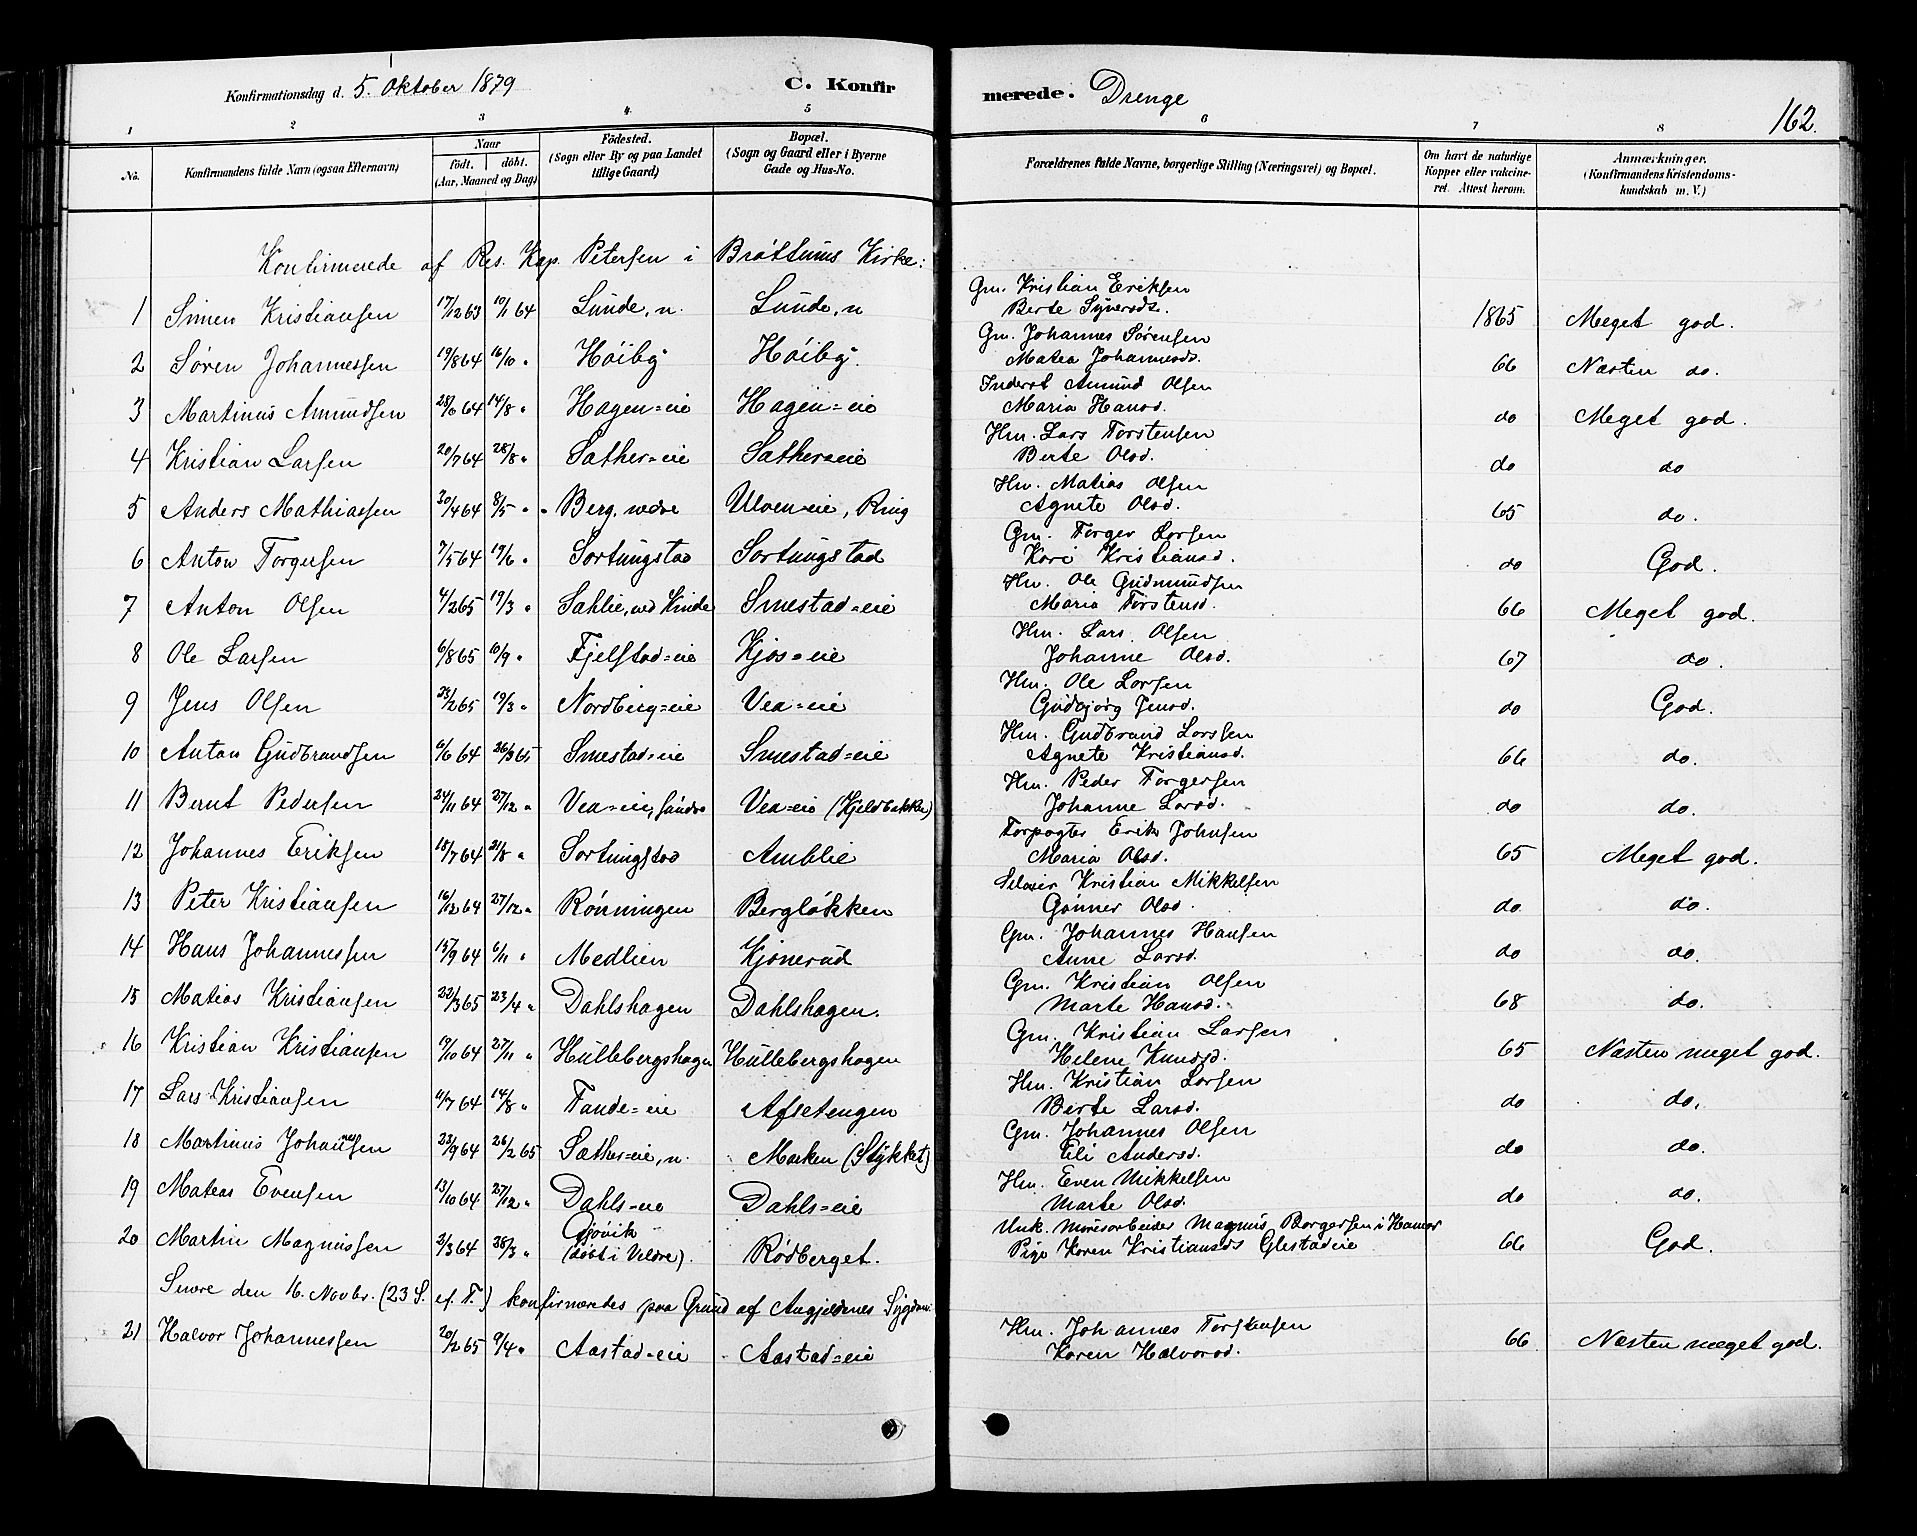 Konfirmationsdag d. 5. Oktober 1879
C. Konfir merede. Drenge
162.
1 2 3 4. 5 6 7 8
No. Konfirmandens fulde Navn (ogsaa Efternavn) Naar födt. döbt. (Aar, Maaned og Dag) Födested. (Sogn eller By og paa Landet tillige Gaard) Bopæl. (Sogn og Gaard eller i Byerne Gade og Hus-No. Forældrenes fulde Navne, borgerlige Stilling (Næringsvei) og Bopæl. Om havt de naturlige Kopper eller vakcineret. Attest herom. Anmærkninger. (Konfirmandens Kristendomskundskab m. V.)
Konfirmerede af Res. Kap. Petersen i Brøttums Kirke:
1 Simen Kristiansen 17/12 63 10/1 64 Lunde, n. Lunde, n Gm. Kristian Eriksen 1865 Meget god.
Berte Syversd.
2 Søren Johannessen 19/8 64 16/10 " Høiby Høiby. Gm. Johannes Sørensen 66 Næsten do.
Matea Johannesd.
3 Martinus Amundsen 14/8 " Hagen=eie Hagen=eie Inderst Amund Olsen do Meget god.
Maria Hansd.
4 Kristian Larsen 20/7 64 28/8 " Sæther=eie Sæther=eie Hm. Lars Torstensen do do
Berte Olsd.
5 Anders Mathiassen 30/4 64 8/5 " Berg, nedre Ulven=eie, Ring Hm. Matias Olsen 65 do.
Agnete Olsd.
6 Anton Torgersen 7/5 64 19/6 " Sortungstad Sortungstad Gm. Torger Larsen do God.
Kari Kristiansd.
7 Anton Olsen 4/2 65 19/3 " Sahlie, ved Kinde Smestad=eie Hm. Ole Gudmundsen 66 Meget god.
Maria Torstensd.
8 Ole Larsen 6/8 65 10/9 " Fjelstad=eie Kjos=eie Hm. Lars Olsen 67 do.
Johanne Olsd.
9 Jens Olsen 23/2 65 19/3 " Nordberg=eie Vea=eie Hm. Ole Larsen do God.
Gudbjørg Jensd.
10 Anton Gudbrandsen 64 26/3 65 Smestad=eie Smestad=eie Hm. Gudbrand Larsen 66 do.
Agnete Kristiansd.
11 Bernt Pedersen 24/11 64 27/12 " Vea=eie, Vea=eie (Kjeldbakken) Hm. Peder Torgersen do do.
Johanne Larsd.
12 Johannes Eriksen 18/7 64 21/8 " Sortungstad Amblie Forpagter Erik Johnsen 65 Meget god.
Maria Olsd.
13 Peter Kristiansen 16/12 64 27/12 " Rønningen Bergløkken Seleier Kristian Mikkelsen do do.
Gunner Olsd.
14 Hans Johannessen 15/9 64 6/11 " Medlien Kjønerud Gm. Johannes Hansen do do.
Anne Larsd.
15 Matias Kristiansen 22/3 65 23/4 " Dahlshagen Dahlshagen. Gm. Kristian Olsen 68 do.
Marte Hansd.
16 Kristian Kristiansen 19/10 64 27/11 " Hullebergshagen Hullebergshagen Gm. Kristian Larsen 65 Næsten meget god.
Helene Knudsd.
17 Lars Kristiansen 64 14/8 " Tande=eie Afsetengen Hm. Kristian Larsen do do.
Berte Larsd.
18 Martinus Johannessen 23/9 64 26/2 65 Sæther=eie, n. Marken (Stykket) Gm. Johannes Olsen do do.
Eli Andersd.
19 Mateas Evensen 13/10 64 27/12 " Dahls=eie Dahls=eie Hm. Even Mikkelsen do do.
Marte Olsd.
20 Martin Magnussen 2/3 64 28/3 " Gjøvik (døbt i Veldre). Rødberget. Unk. Mursarbeider Magnus Borgersen i Hamar 66 God.
Pige Karen Kristiansd. Glestadeie
Senere den 16. Novbr. (23 S. ef. T.) konfirmeredes paa Grund af Angjeldenes Sygdom:
21 Halvor Johannessen 20/2 65 9/4 " Aastad=eie Aastad=eie Hm. Johannes Torstensen 66 Næsten meget god.
Karen Halvorsd.